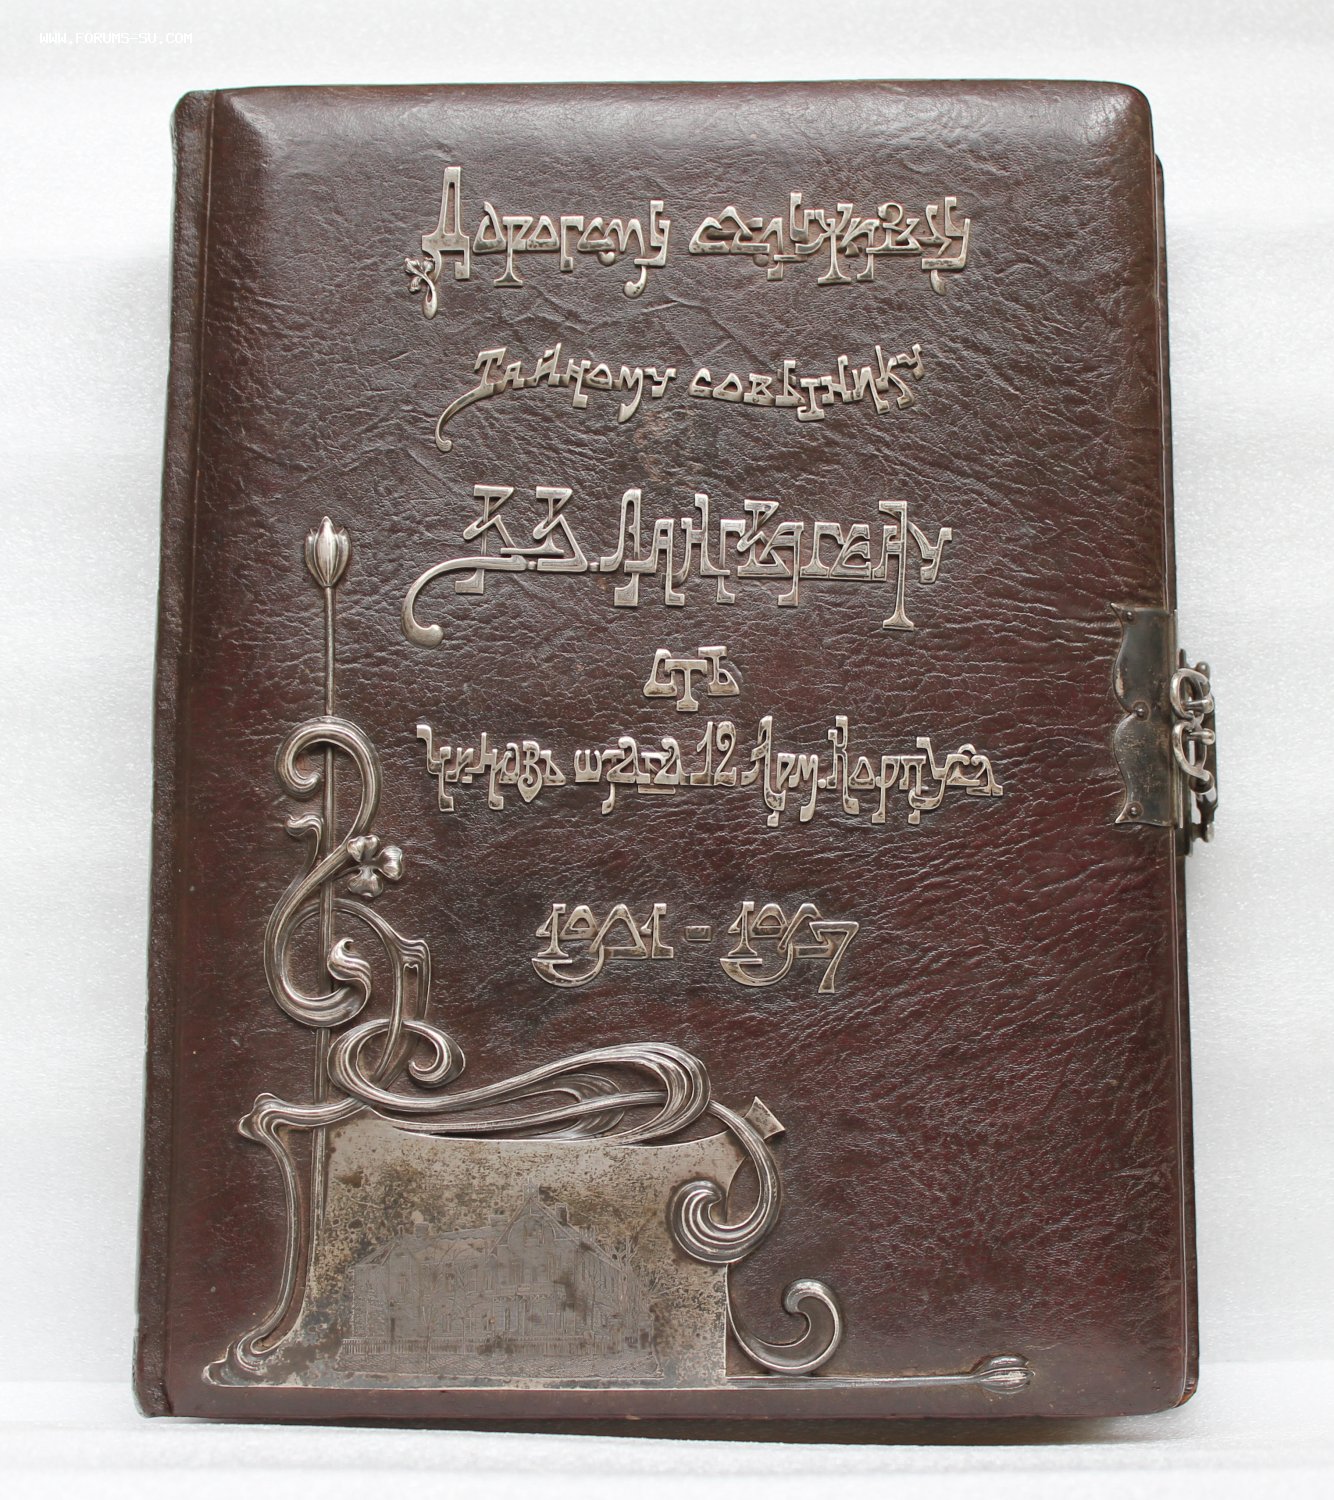 WWW.FORUMS-SU.COM
Дорогому сослуживцу
Тайному совѣтнику
В.В. Лангвагену
отъ
Чиновъ штаба 12 Арм. Корпуса
1901-1907